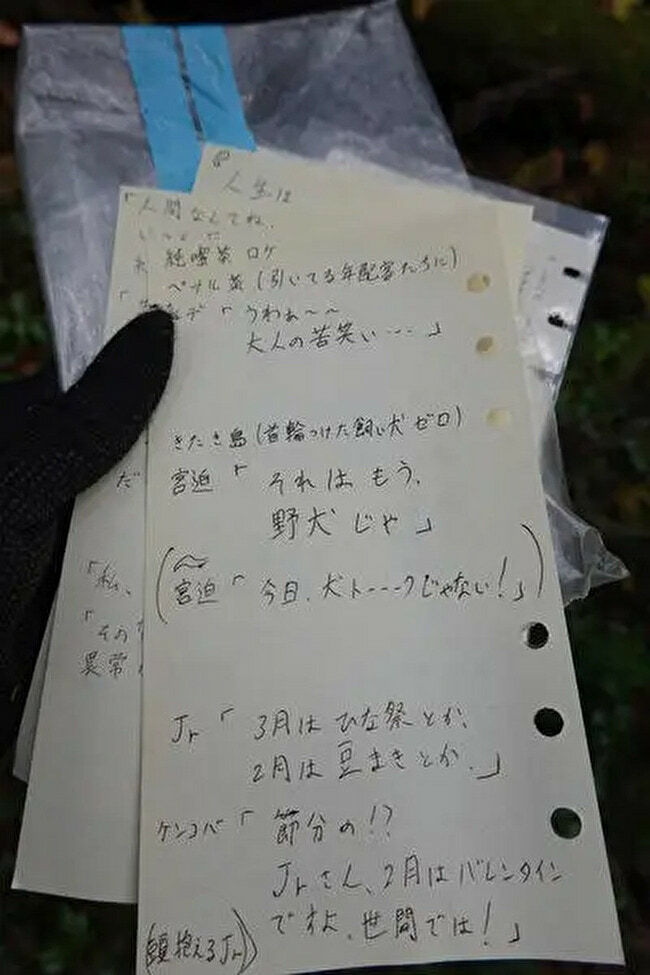 人生は
「人間なんてね、
純喫茶ロケ
ペナル茶(引いてる年配客たちに)
「うわぁ〜〜
大人の苦笑い…」
きたき島(首輪つけた飼い犬ゼロ)
だ
宮迫「それはもう、
野犬じゃ」
(宮迫「今日、犬トーークじゃない!」)
「私、
「その
異常
Jr「3月はひな祭とか、
2月は豆まきとか。」
ケンコバ「節分の!?
Jrさん、2月はバレンタイン
ですよ、世間では!」
(頭抱えるJr)